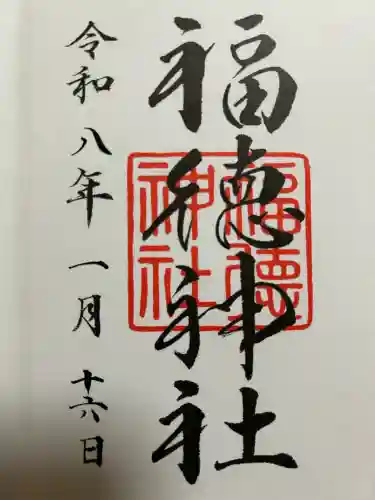 福徳神社
福徳神社
令和八年一月十六日